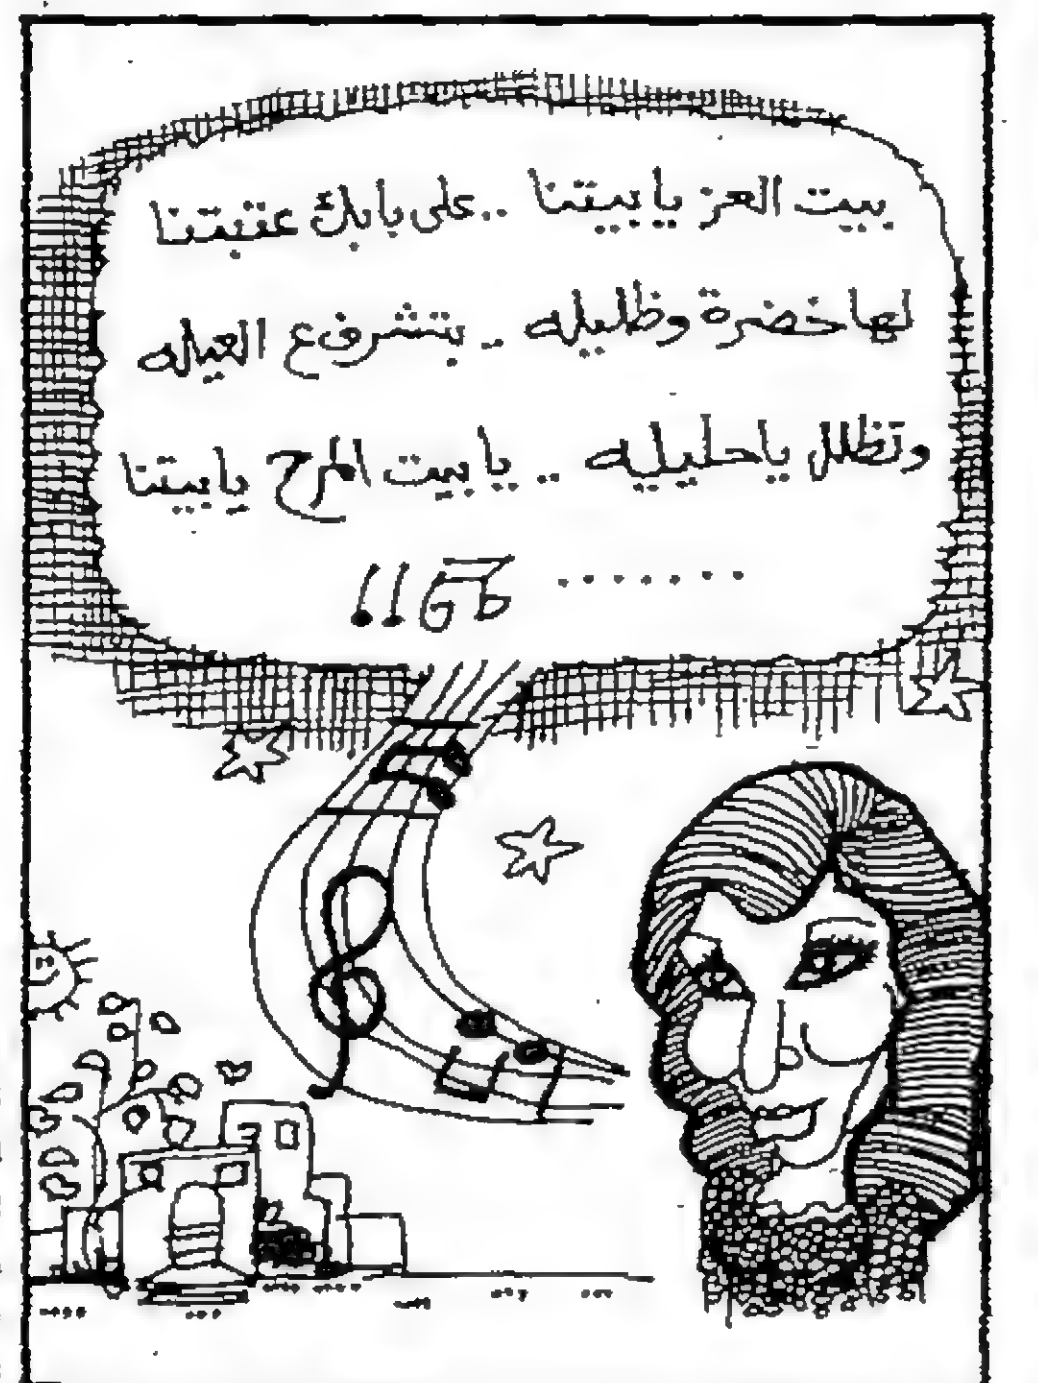 بيت العز يا بيتنا .. على بابك عنبتنا
لها خضرة وظليله .. بتشرف ع العيله
وتظلل يا حليله .. يا بيت المرح يا بيتنا
....... !!